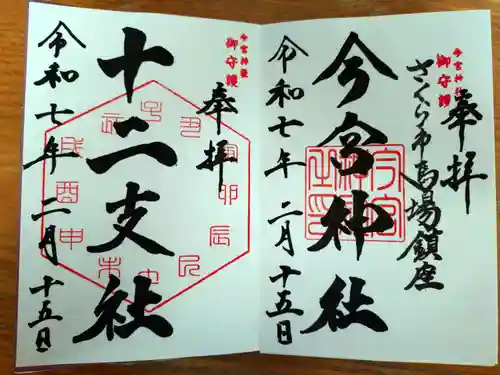 奉拝
今宮神社
御守護
さくら市馬場鎮座
今宮神社
令和七年二月十五日
奉拝
今宮神社
御守護
十二支社
令和七年二月十五日
子
丑
寅
卯
辰
巳
午
未
申
酉
戌
亥